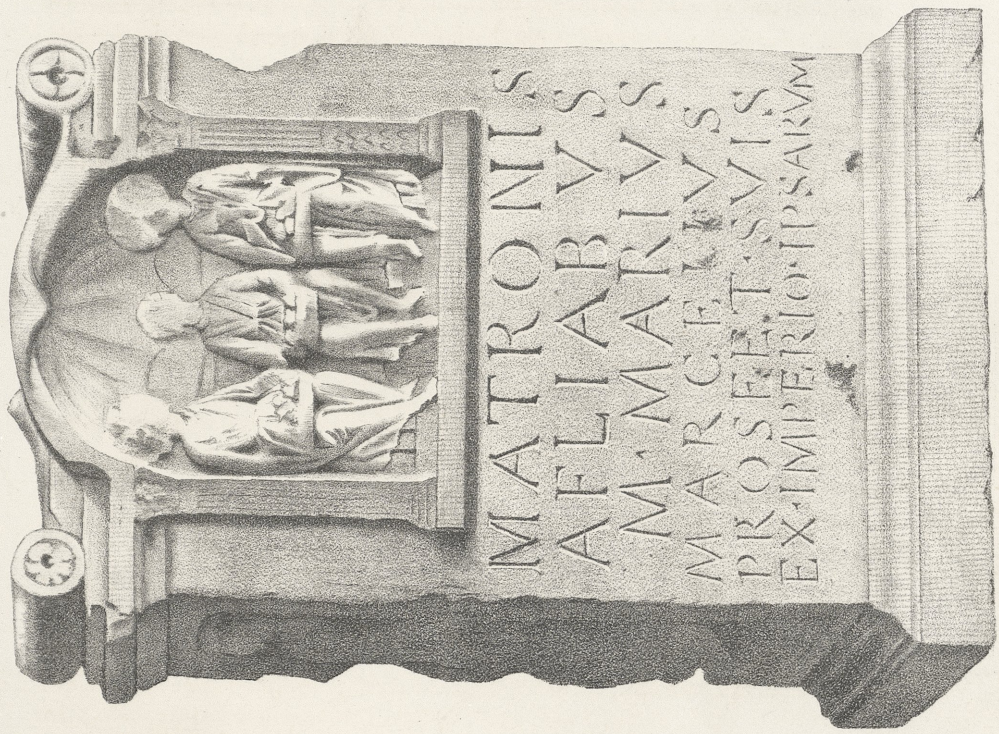 MATRONIS
AFLIABVS
M·MARIVS
MARCELLVS
PRO·SE·ET·SVIS
EX·IMPERIO·IPSARVM